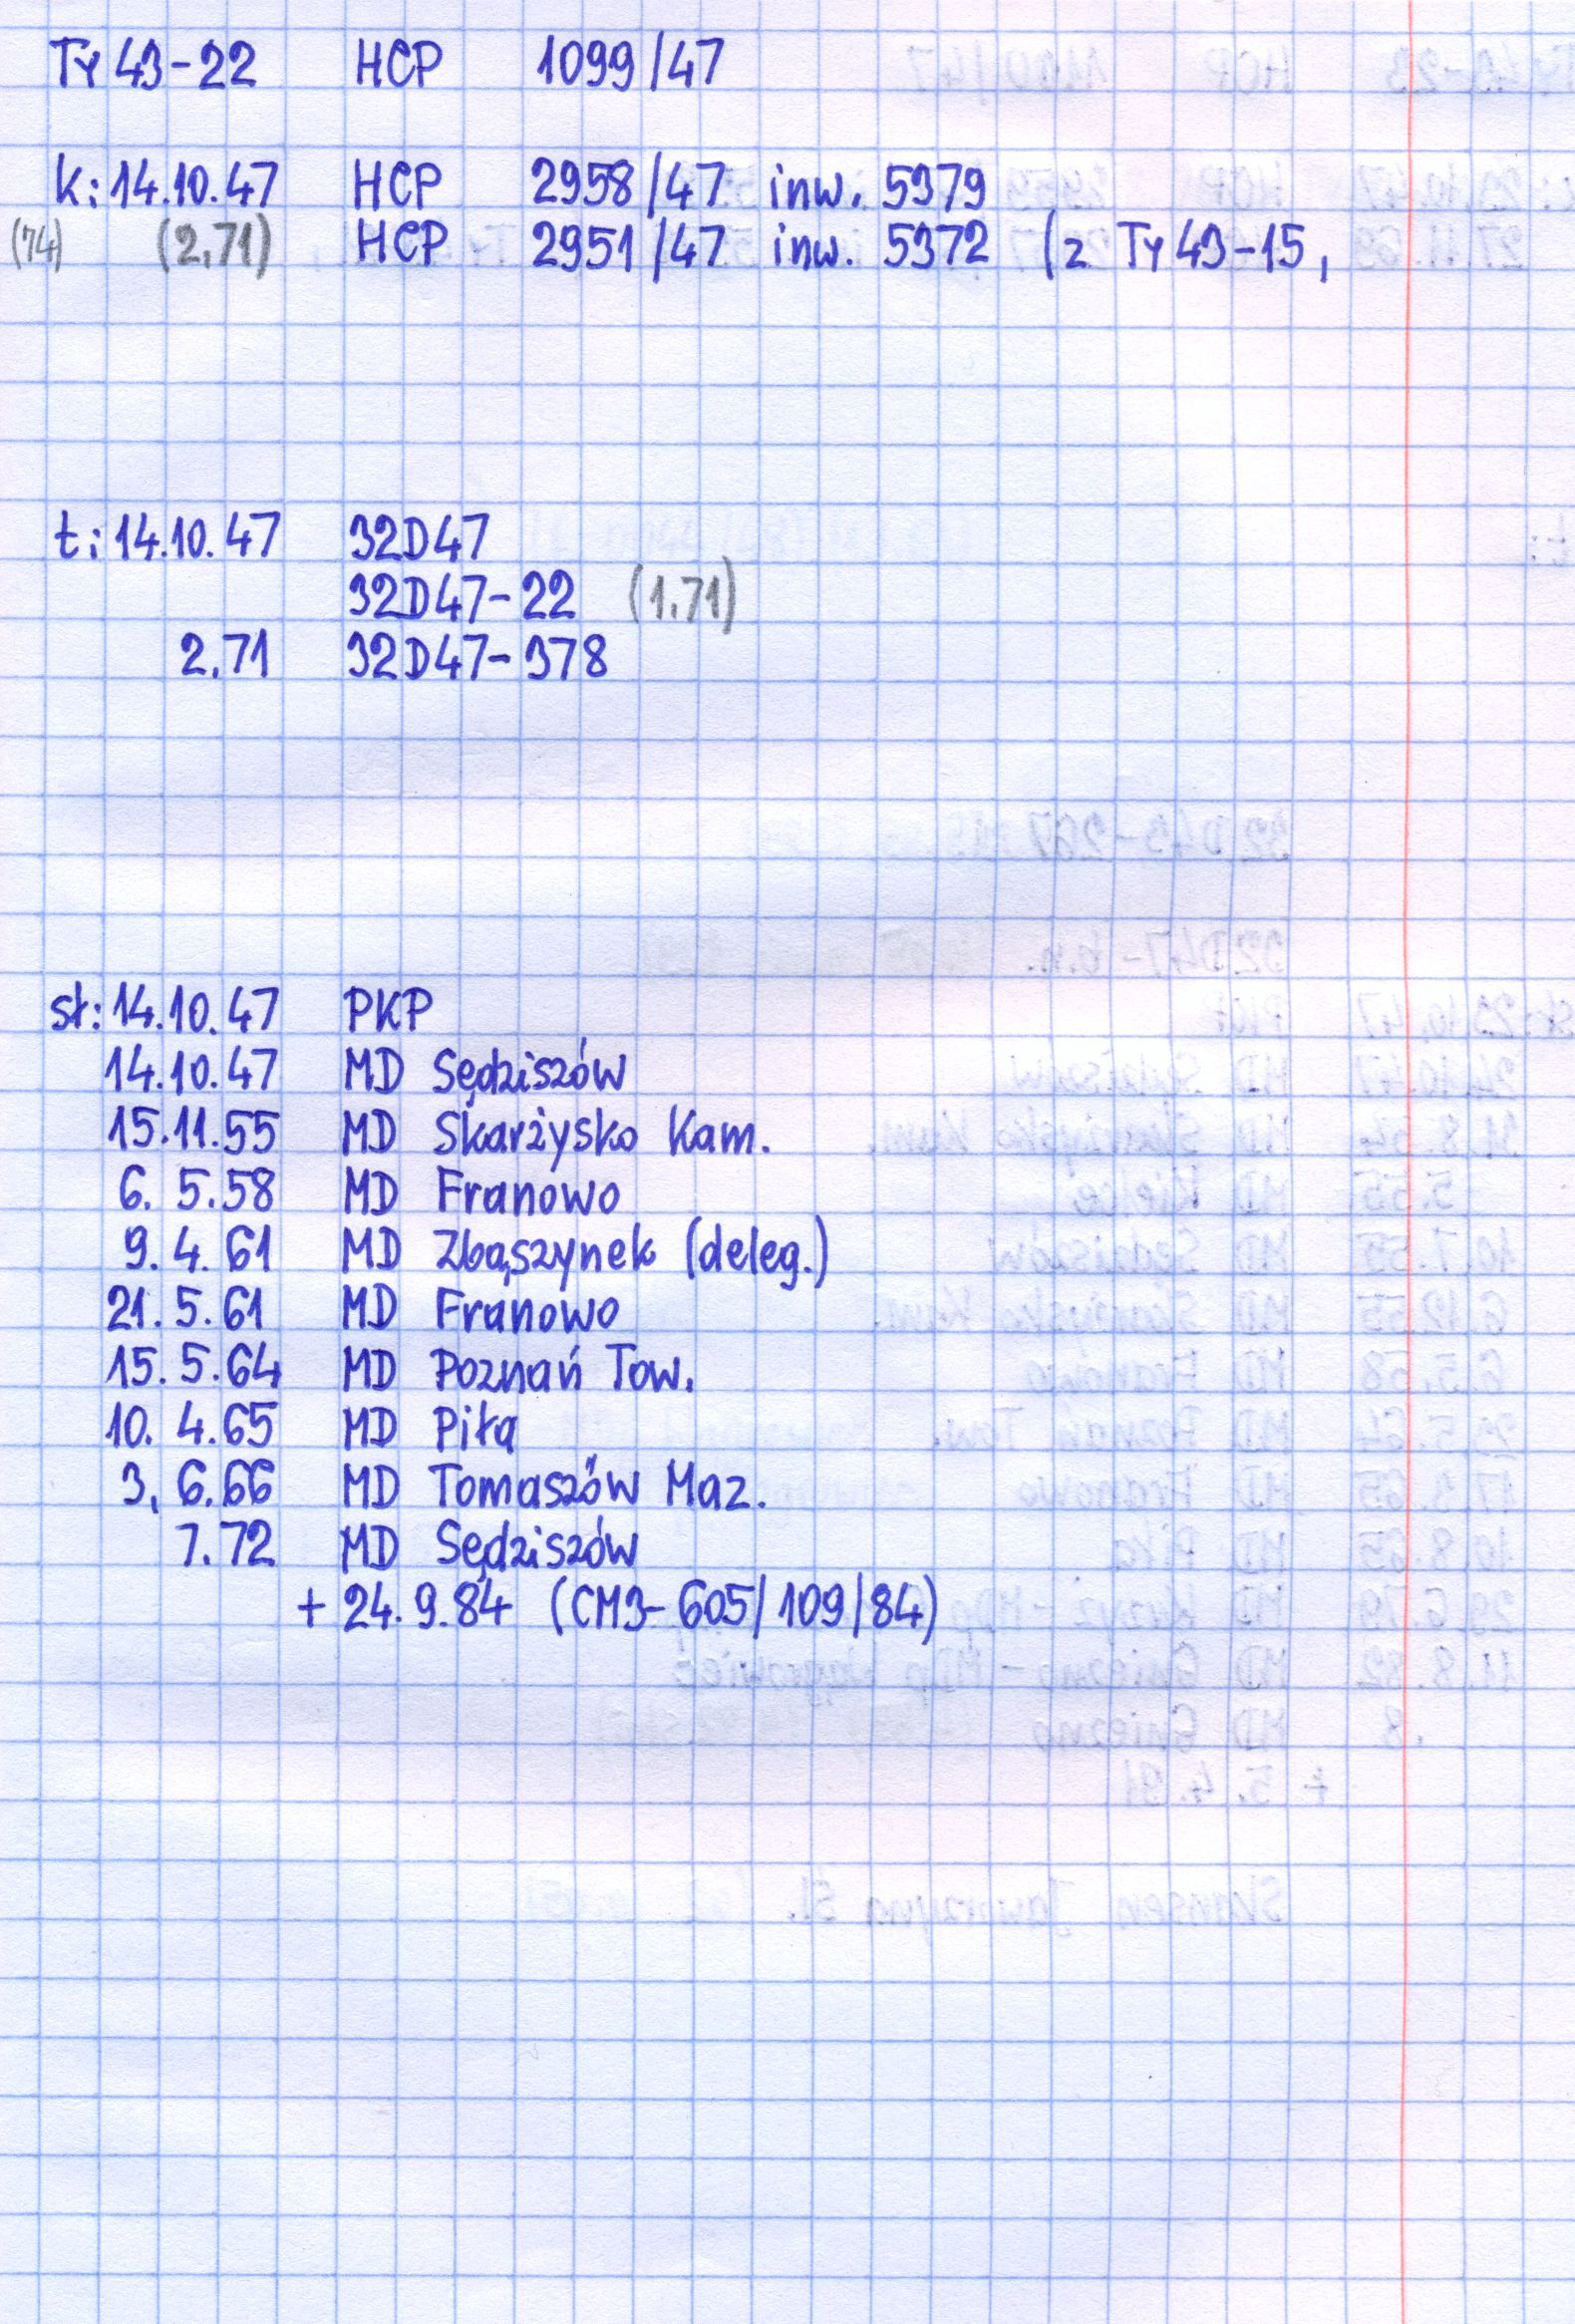 Ty 43-22 HCP 1099/47
k: 14.10.47 HCP 2958/47 inw. 5379
(74) (2.71) HCP 2951/47 inw. 5372 (z Ty 43-15,
t: 14.10.47 32D47
32D47-22 (1.71)
2.71 32D47-378
st: 14.10.47 PKP
14.10.47 MD Sędziszów
15.11.55 MD Skarżysko Kam.
6. 5.58 MD Franowo
9. 4. 61 MD Zbąszynek (deleg.)
21. 5.61 MD Franowo
15. 5.64 MD Poznań Tow.
10. 4.65 MD Piła
3. 6.66 MD Tomaszów Maz.
7.72 MD Sędziszów
+ 24.9.84 (CM3-605/109/84)